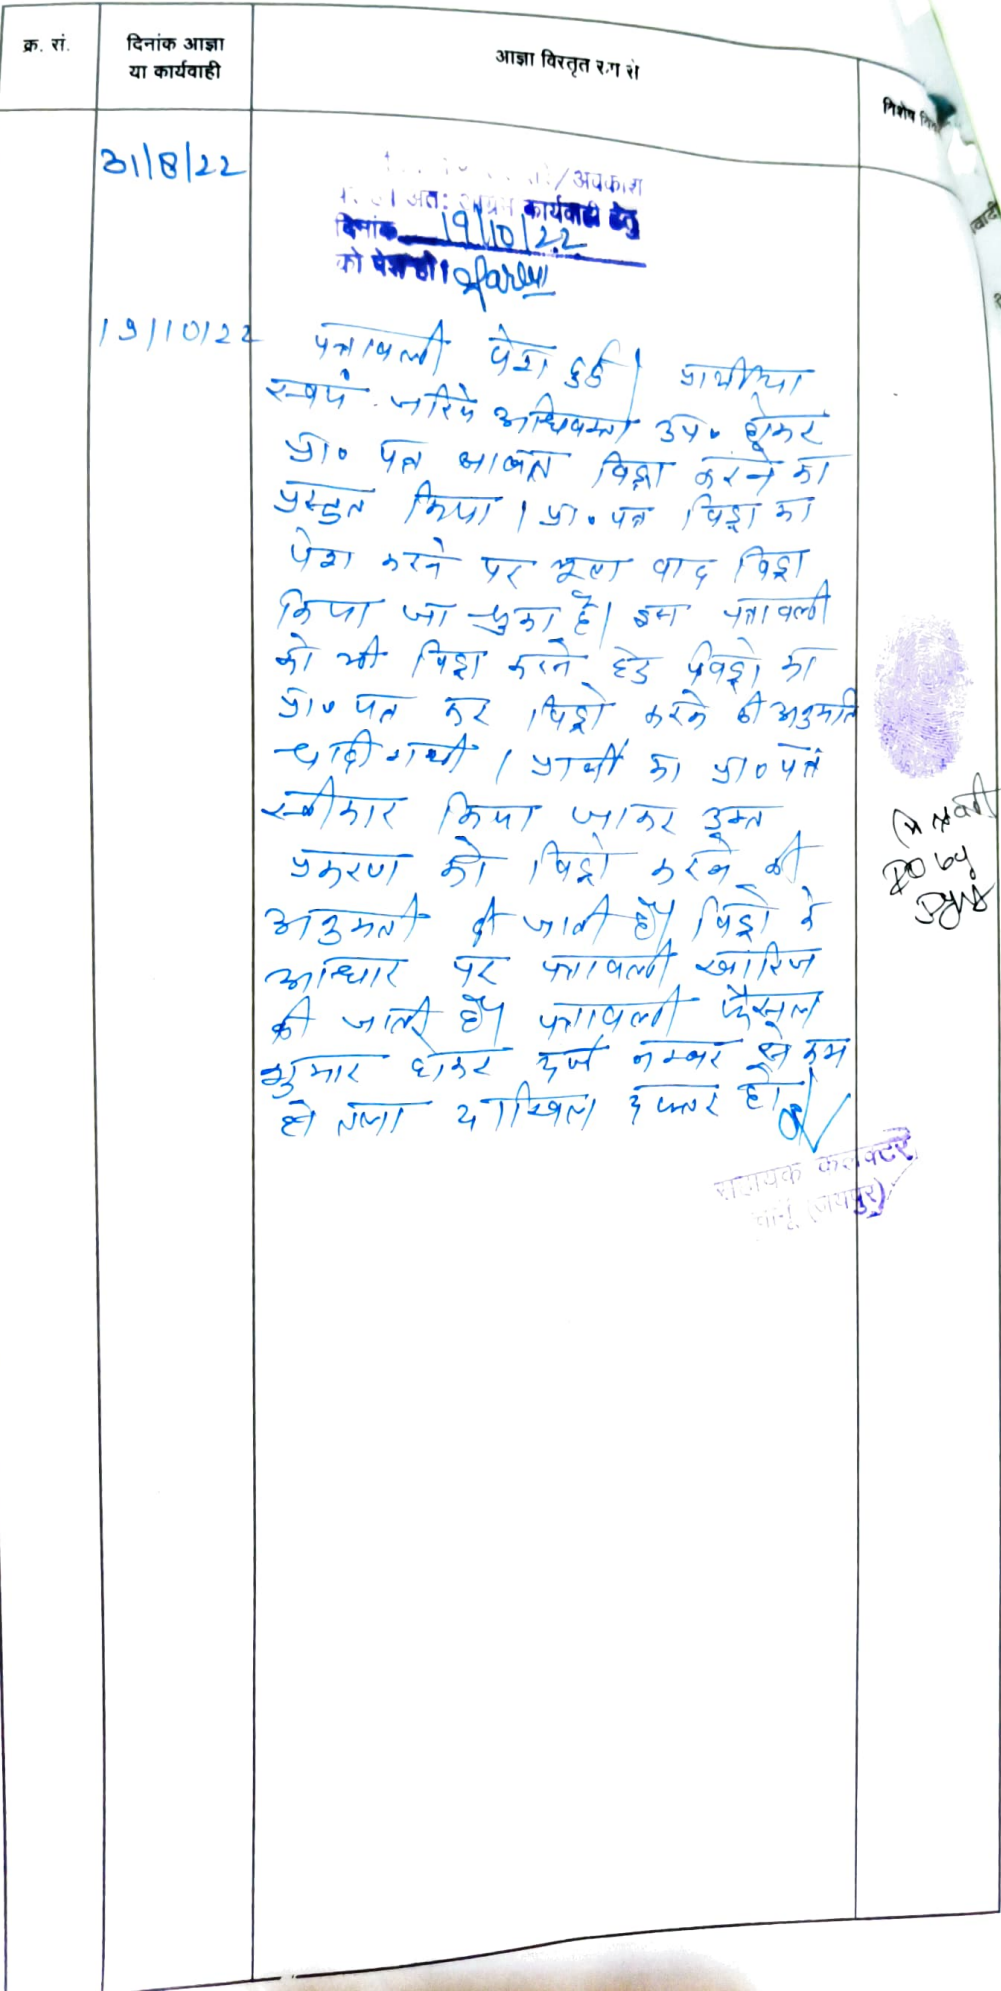 क्र. सं.
दिनांक आज्ञा
या कार्यवाही
आज्ञा विस्तृत रूप से
विशेष
31/8/22
/अवकाश
अतः अग्रिम कार्यवाही हेतु
दिनांक 19/10/22
को पेश हो।
19/10/22
पत्रावली पेश हुई। प्रार्थीया
स्वयं जरिये अधिवक्ता उप० होकर
प्रा० पत्र बाबत विड्रा करने का
प्रस्तुत किया। प्रा० पत्र विड्रा का
पेश करने पर मूल वाद विड्रा
किया जा चुका है। इस पत्रावली
को भी विड्रा करने हेतु विड्रो का
प्रा० पत्र कर विड्रो करने की अनुमति
चाही गयी। प्रार्थी का प्रा० पत्र
स्वीकार किया जाकर उक्त
प्रकरण को विड्रो करने की
अनुमती दी जाती है। विड्रो के
आधार पर पत्रावली खारिज
की जाती है। पत्रावली फैसल
शुमार होकर दर्ज नम्बर से कम
हो तथा दाखिल दफ्तर हो।
सहायक कलक्टर
(जयपुर)